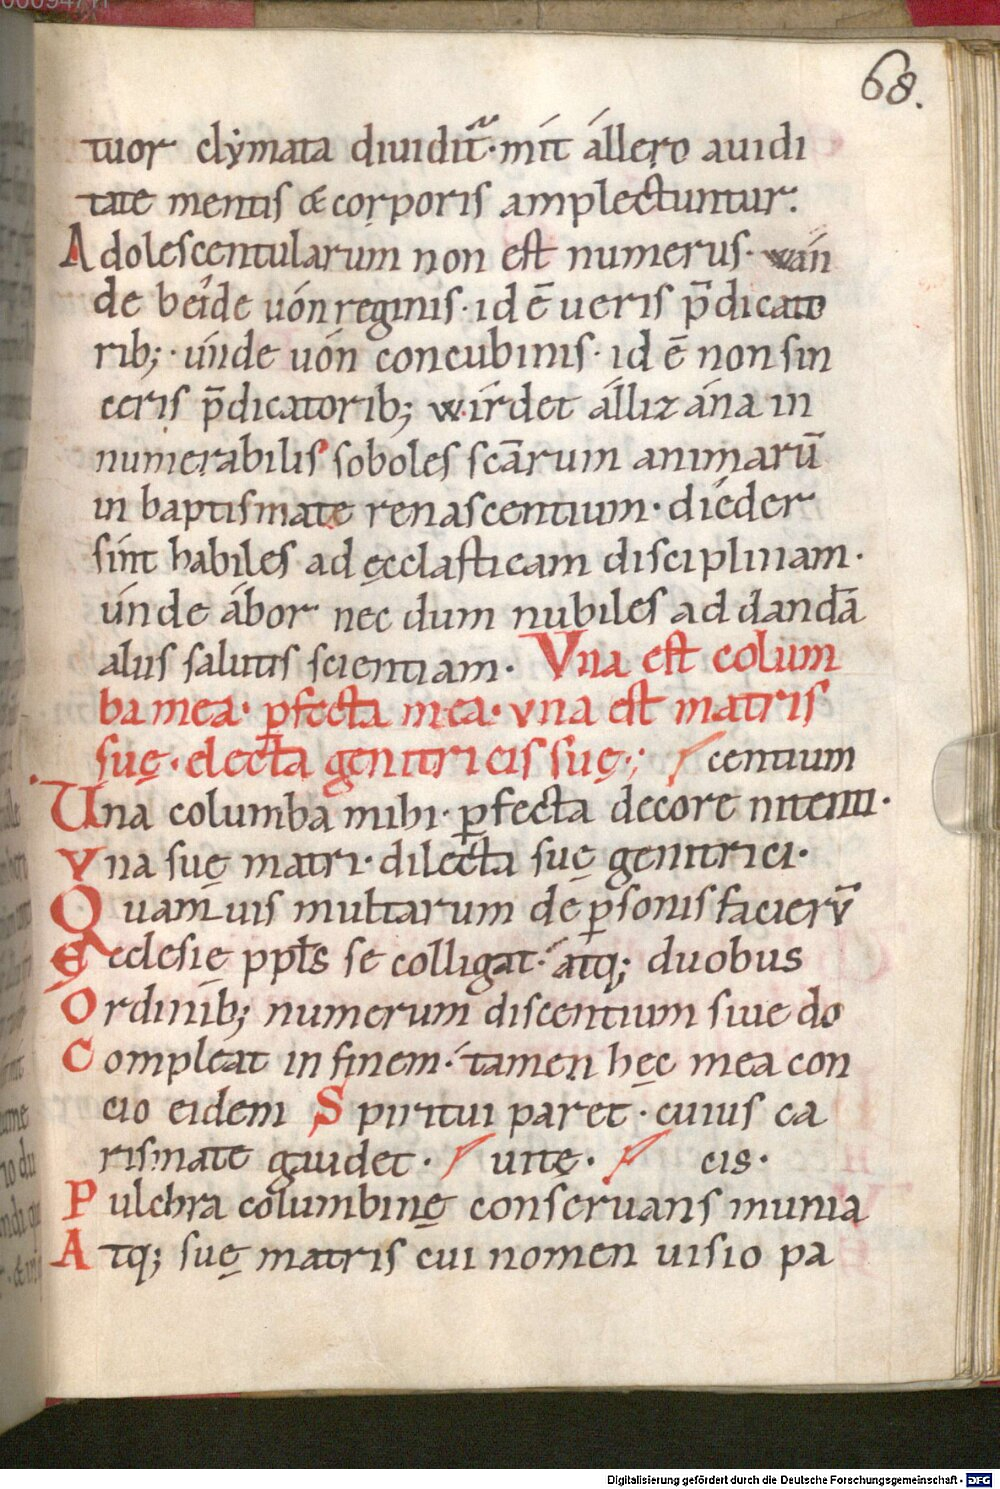 68.
tuor clẏmata diuidit᷑·mít állero auidi
tate mentis & corporis amplectuntur.
Adolescentularum non est numerus· wán
de béide uón reginis· id ē ueris p̄dicato
rib;· únde uón concubinis· id ē non sin
ceris p̄dicatoribꝫ wírdet álliz ána in
numerabilis soboles scārum animarū
in baptismate renascentium· dîeder
sint habiles ad ęcclasticam disciplinam·
únde ábor nec dum nubiles ad dandā
aliis salutis scientiam· Vna est colum
ba mea· ꝑfecta mea· vna est matris
suę· electa genitricis suę·; centium
Una columba mihi· ꝑfecta decore nitenti·
Vna suę matri· dilecta suę genitrici·
Quamuis multarum de ꝑsonis facierū
Ecclesię ppl̄s se colligat· atq; duobus
Ordinib; numerum discentium siue do
Compleat in finem· tamen hęc mea con
cio eidem Spiritui paret· cuius ca
rismate gaudet· uitę· cis·
Pulchra columbinę conseruans munia
Atq; suę matris cui nomen uisio pa
Digitalisierung gefördert durch die Deutsche Forschungsgemeinschaft - DFG